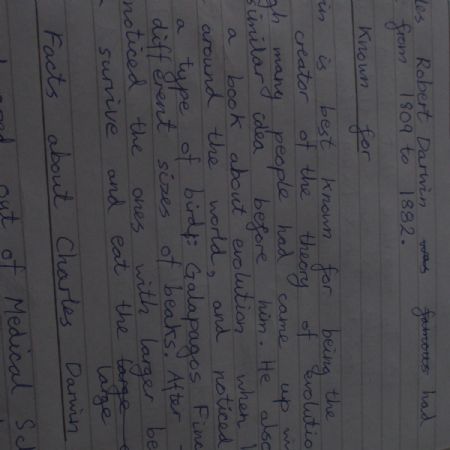 Robert Darwin was famous had
from 1809 to 1882.
Known for
is best known for being the
creator of the theory of evolutio
many people had came up wi
similar idea before him. He also
a book about evolution when
around the world, and noticed
a type of bird: Galapagos Finc
different sizes of beaks. After
noticed the ones with larger be
survive and eat the large
large
Facts about Charles Darwin
out of Medical Sch